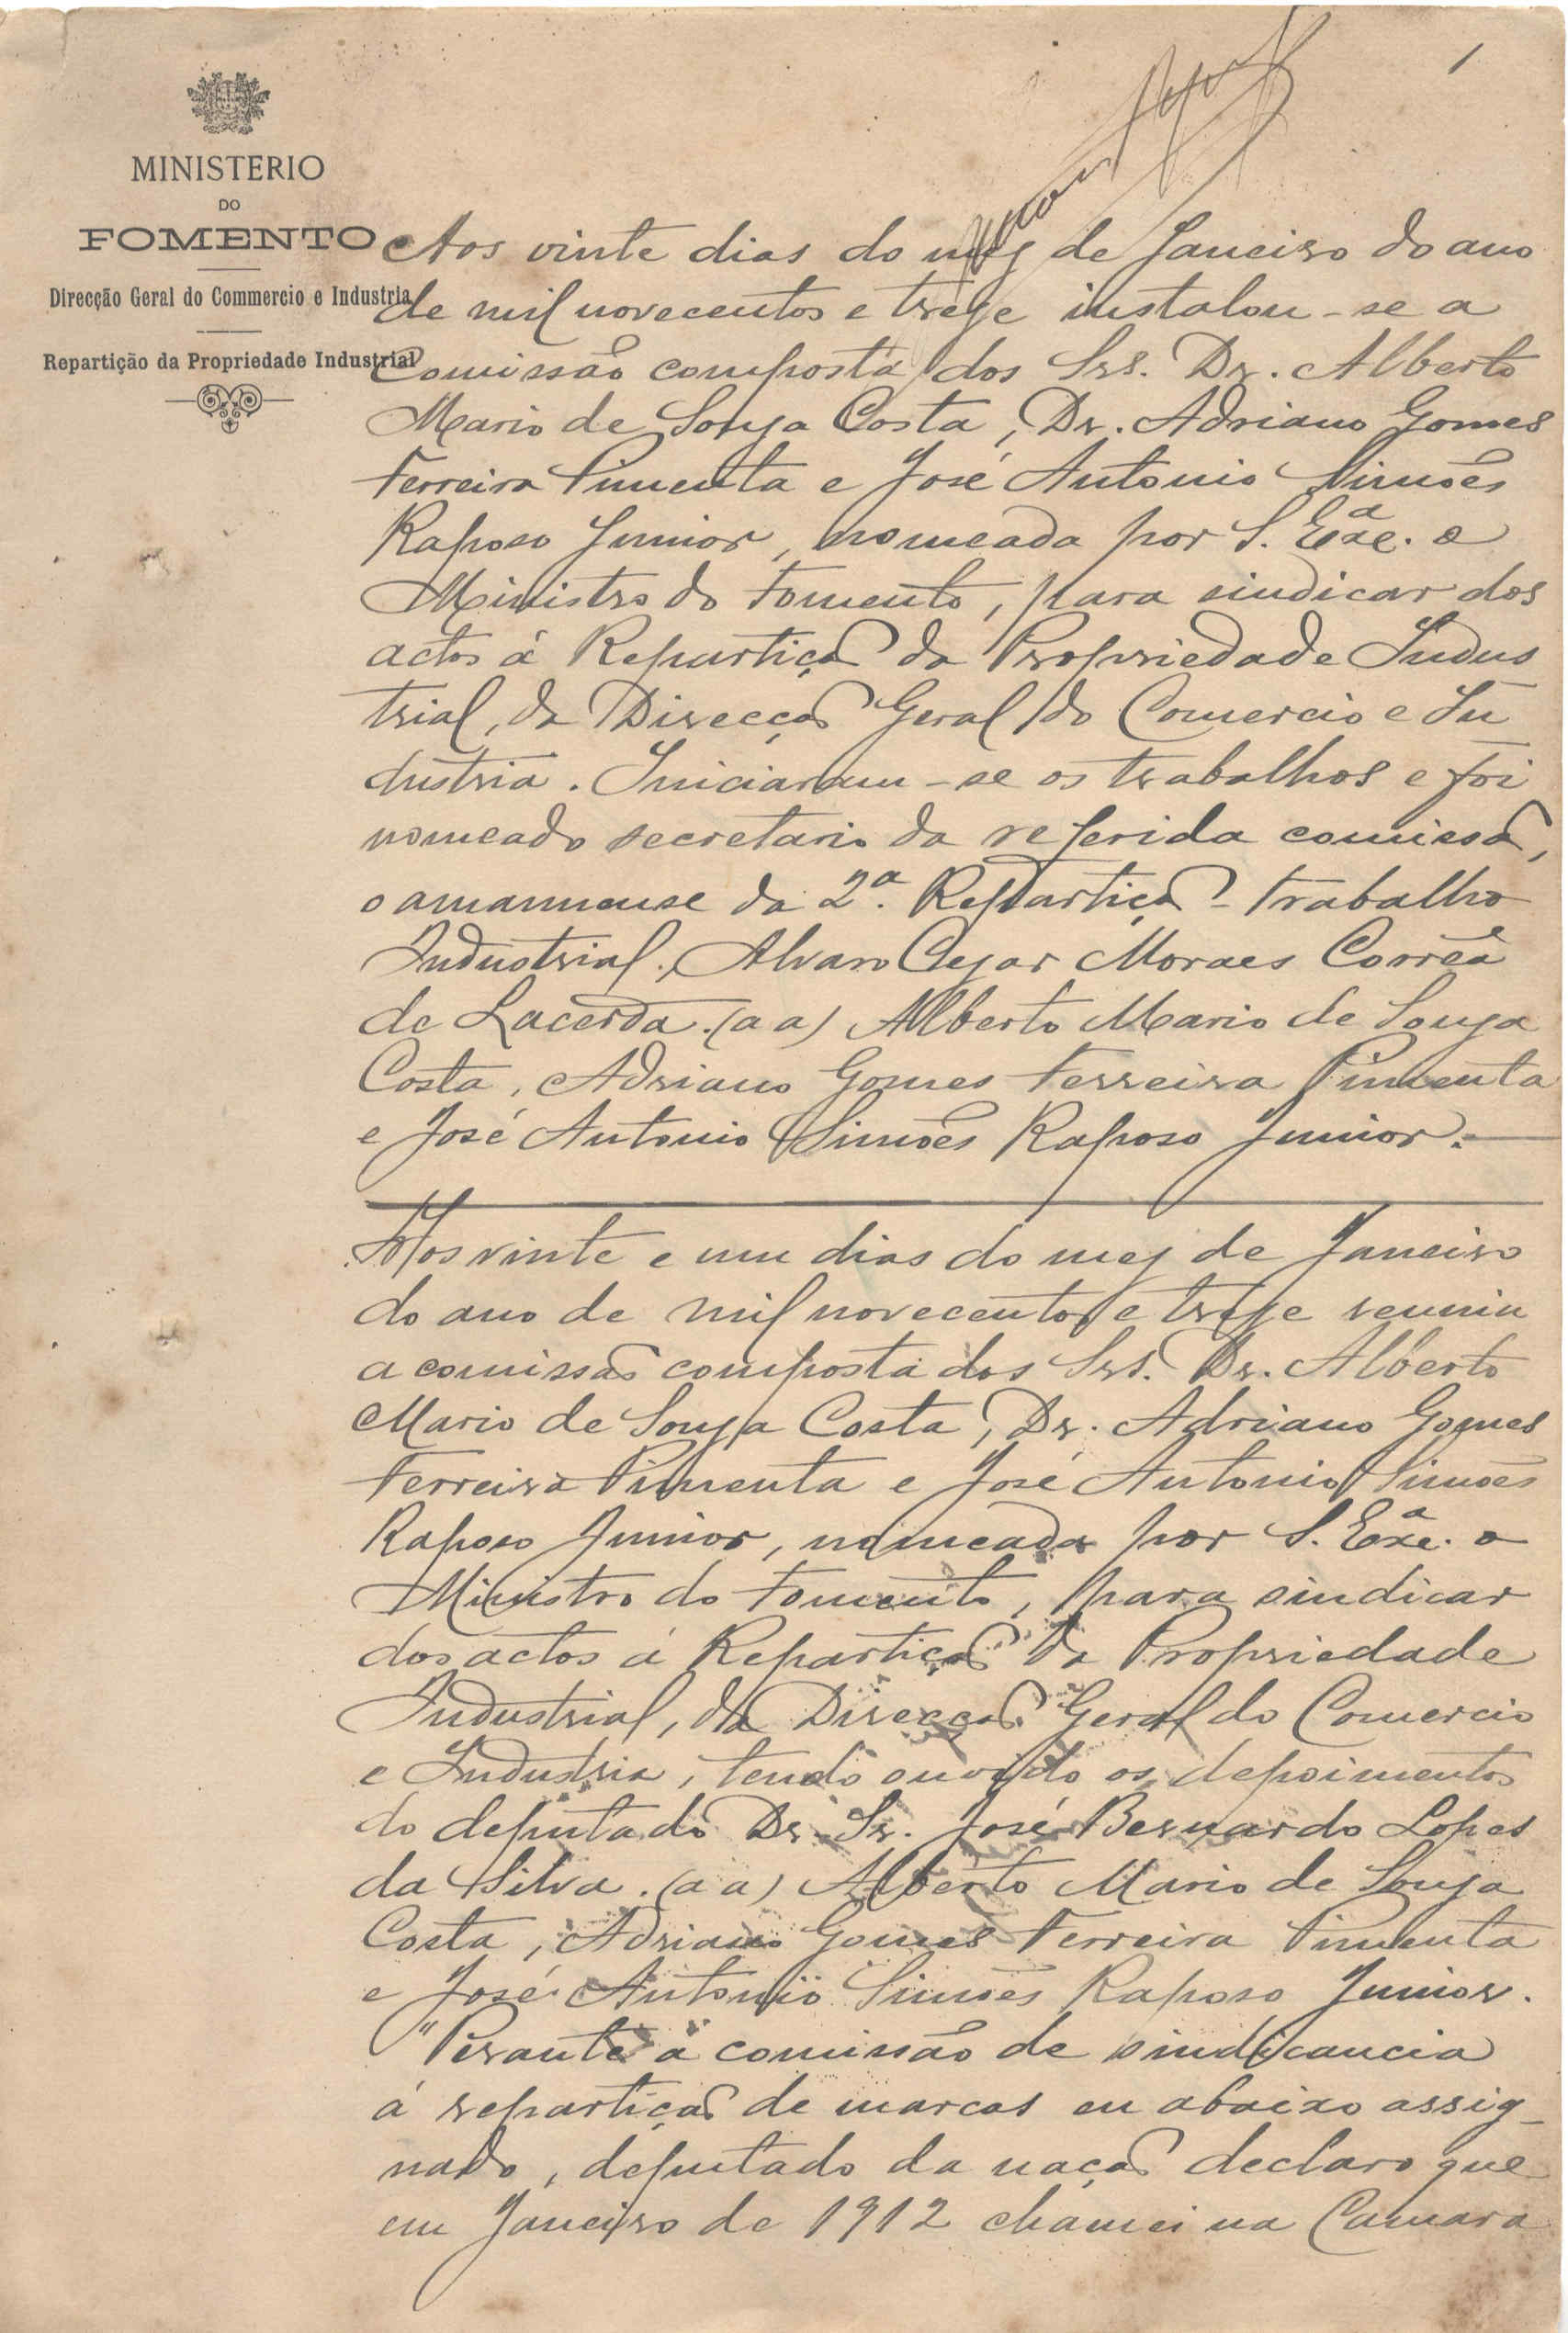 1
MINISTERIO
DO
FOMENTO
Direcção Geral do Commercio e Industria
Repartição da Propriedade Industrial
Aos vinte dias do mez de Janeiro do ano
de mil novecentos e treze instalou-se a
Comissão composta dos Srs. Dr. Alberto
Mario de Souza Costa, Dr. Adriano Gomes
Ferreira Pimenta e José Antonio Simões
Raposo Junior, nomeada por S. Exª. o
Ministro do Fomento, para sindicar dos
actos á Repartição da Propriedade Indus
trial, da Direcção Geral do Comercio e In
dustria. Iniciaram-se os trabalhos e foi
nomeado secretario da referida comissão,
o amanuense da 2ª. Repartição - Trabalho
Industrial, Alvaro Cezar Moraes Corrêa
de Lacerda. (a a) Alberto Mario de Souza
Costa, Adriano Gomes Ferreira Pimenta
e José Antonio Simões Raposo Junior.
Aos vinte e um dias do mez de Janeiro
do ano de mil novecentos e treze reuniu
a comissão composta dos Srs. Dr. Alberto
Mario de Souza Costa, Dr. Adriano Gomes
Ferreira Pimenta e José Antonio Simões
Raposo Junior, nomeada por S. Exª. o
Ministro do Fomento, para sindicar
dos actos á Repartição da Propriedade
Industrial, da Direcção Geral do Comercio
e Industria, tendo ouvido os depoimentos
do deputado Dr. Sr. José Bernardo Lopes
da Silva. (a a) Alberto Mario de Souza
Costa, Adriano Gomes Ferreira Pimenta
e José Antonio Simões Raposo Junior.
"Perante a comissão de sindicancia
á repartição de marcas eu abaixo assig-
nado, deputado da nação declaro que
em Janeiro de 1912 chamei na Camara